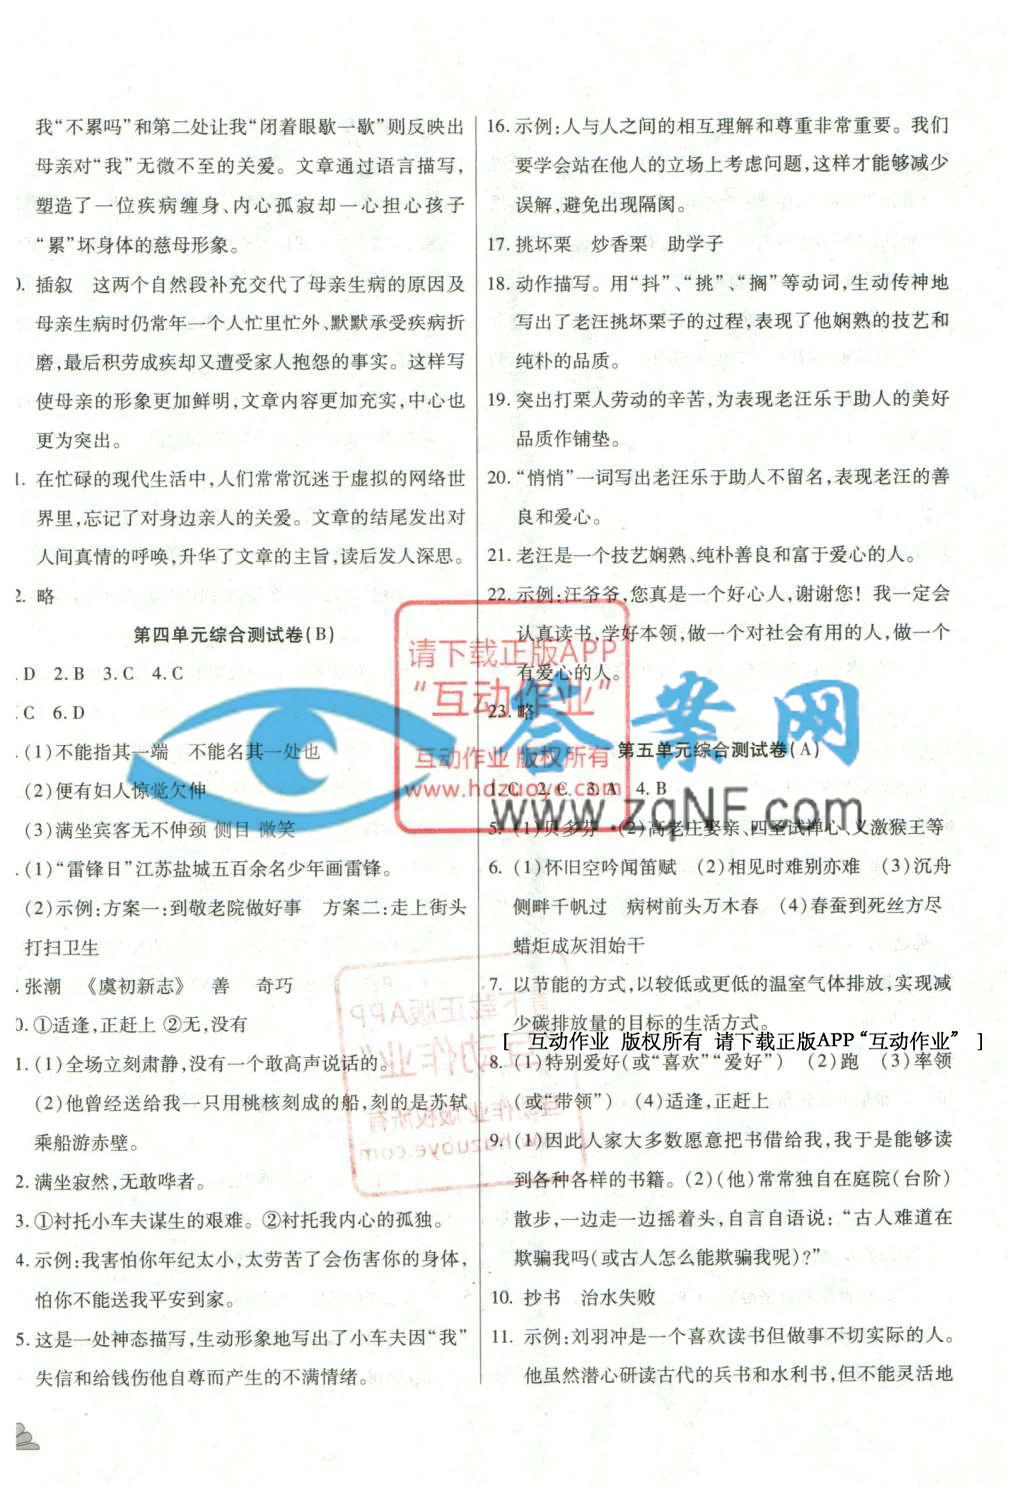 我“不累吗”和第二处让我“闭着眼歇一歇”则反映出
母亲对“我”无微不至的关爱。文章通过语言描写,
塑造了一位疾病缠身、内心孤寂却一心担心孩子
“累”坏身体的慈母形象。
0. 插叙 这两个自然段补充交代了母亲生病的原因及
母亲生病时仍常年一个人忙里忙外、默默承受疾病折
磨,最后积劳成疾却又遭受家人抱怨的事实。这样写
使母亲的形象更加鲜明,文章内容更加充实,中心也
更为突出。
1. 在忙碌的现代生活中,人们常常沉迷于虚拟的网络世
界里,忘记了对身边亲人的关爱。文章的结尾发出对
人间真情的呼唤,升华了文章的主旨,读后发人深思。
2. 略
第四单元综合测试卷(B)
. D 2. B 3. C 4. C
. C 6. D
(1)不能指其一端 不能名其一处也
(2)便有妇人惊觉欠伸
(3)满坐宾客无不伸颈 侧目 微笑
. (1)“雷锋日”江苏盐城五百余名少年画雷锋。
(2)示例:方案一:到敬老院做好事 方案二:走上街头
打扫卫生
. 张潮 《虞初新志》 善 奇巧
0. ①适逢,正赶上 ②无,没有
1. (1)全场立刻肃静,没有一个敢高声说话的。
(2)他曾经送给我一只用桃核刻成的船,刻的是苏轼
乘船游赤壁。
2. 满坐寂然,无敢哗者。
3. ①衬托小车夫谋生的艰难。②衬托我内心的孤独。
4. 示例:我害怕你年纪太小,太劳苦了会伤害你的身体,
怕你不能送我平安到家。
5. 这是一处神态描写,生动形象地写出了小车夫因“我”
失信和给钱伤他自尊而产生的不满情绪。
16. 示例:人与人之间的相互理解和尊重非常重要。我们
要学会站在他人的立场上考虑问题,这样才能够减少
误解,避免出现隔阂。
17. 挑坏栗 炒香栗 助学子
18. 动作描写。用“抖”、“挑”、“搁”等动词,生动传神地
写出了老汪挑坏栗子的过程,表现了他娴熟的技艺和
纯朴的品质。
19. 突出打栗人劳动的辛苦,为表现老汪乐于助人的美好
品质作铺垫。
20. “悄悄”一词写出老汪乐于助人不留名,表现老汪的善
良和爱心。
21. 老汪是一个技艺娴熟、纯朴善良和富于爱心的人。
22. 示例:汪爷爷,您真是一个好心人,谢谢您！我一定会
认真读书,学好本领,做一个对社会有用的人,做一个
有爱心的人。
23. 略
第五单元综合测试卷(A)
1. C 2. C 3. A 4. B
5. (1)贝多芬 (2)高老庄娶亲、四圣试禅心、义激猴王等
6. (1)怀旧空吟闻笛赋 (2)相见时难别亦难 (3)沉舟
侧畔千帆过 病树前头万木春 (4)春蚕到死丝方尽
蜡炬成灰泪始干
7. 以节能的方式,以较低或更低的温室气体排放,实现减
少碳排放量的目标的生活方式。
[ 互动作业 版权所有 请下载正版APP“互动作业” ]
8. (1)特别爱好(或“喜欢”“爱好”) (2)跑 (3)率领
(或“带领”) (4)适逢,正赶上
9. (1)因此人家大多数愿意把书借给我,我于是能够读
到各种各样的书籍。(2)(他)常常独自在庭院(台阶)
散步,一边走一边摇着头,自言自语说:“古人难道在
欺骗我吗(或古人怎么能欺骗我呢)?”
10. 抄书 治水失败
11. 示例:刘羽冲是一个喜欢读书但做事不切实际的人。
他虽然潜心研读古代的兵书和水利书,但不能灵活地
请下载正版APP
“互动作业”
互动作业 版权所有
www.hdzuoye.com
答案网
www.zqNF.com
请下载正版APP
“互动作业”
互动作业 版权所有
www.hdzuoye.com